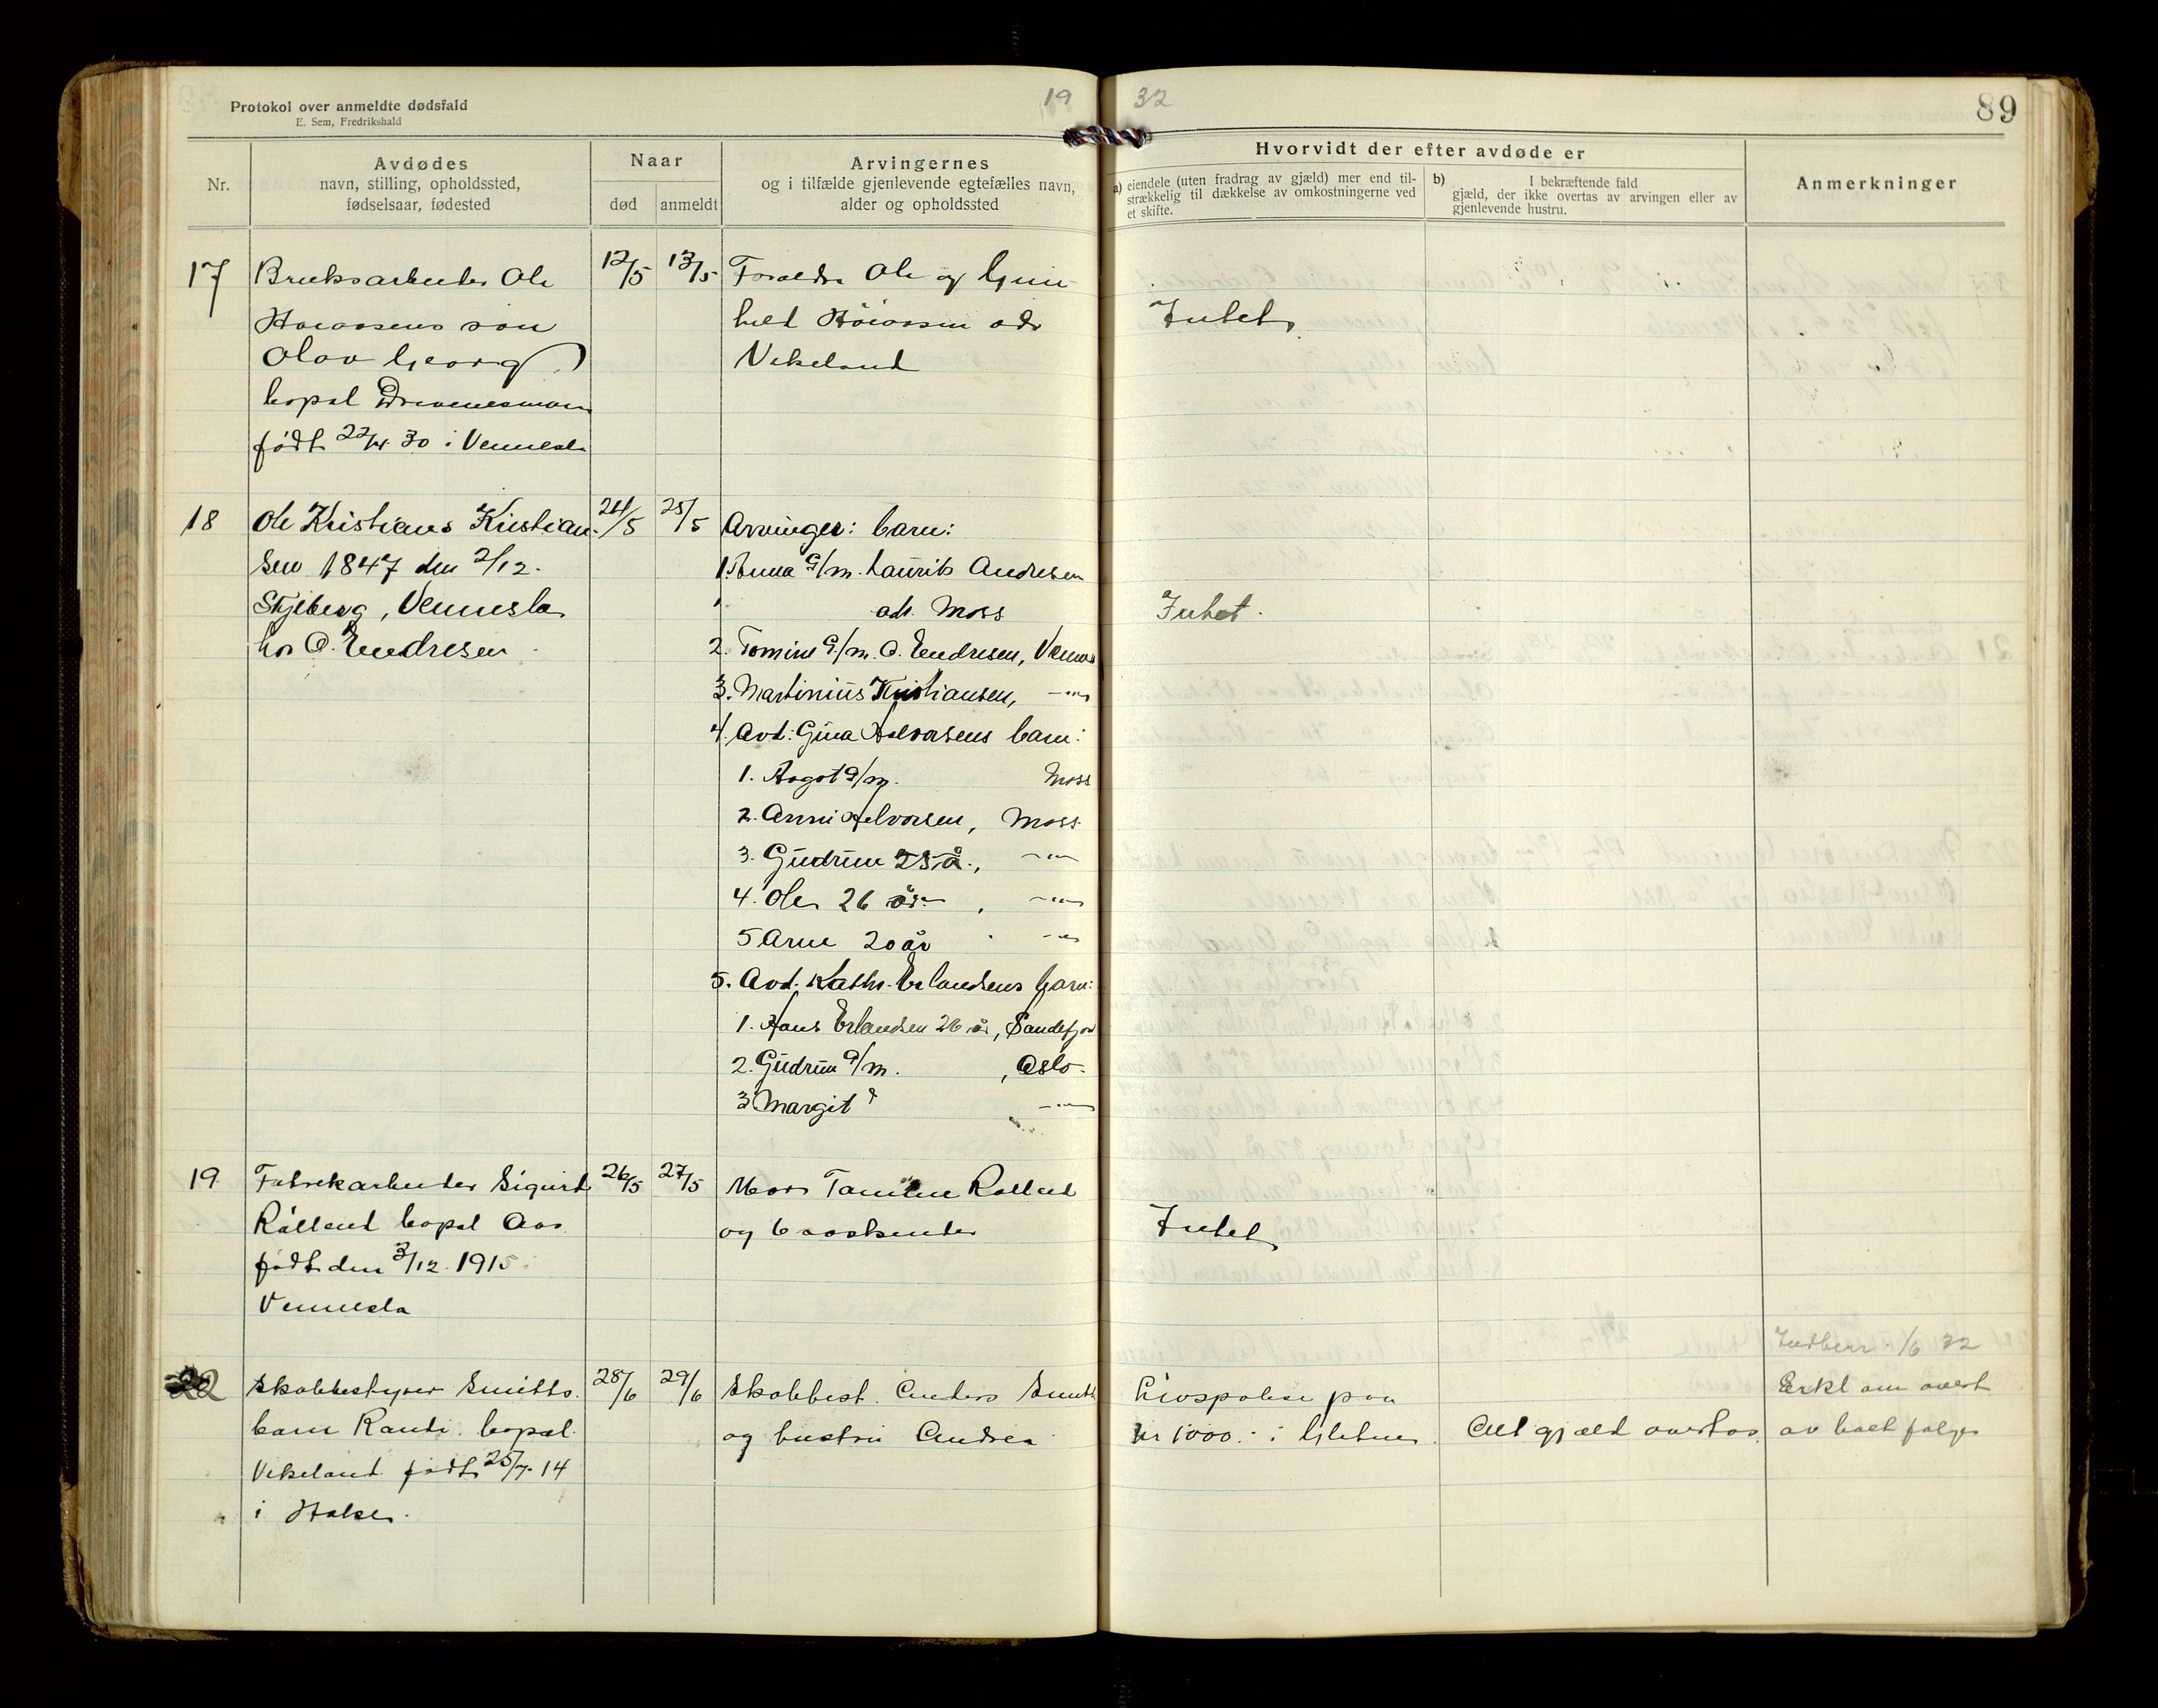 Protokol over anmeldte dødsfald
E. Sem, Fredrikshald
19 32
89
Nr.
Avdødes
navn, stilling, opholdssted,
fødselsaar, fødested
Naar
død
anmeldt
Arvingernes
og i tilfælde gjenlevende egtefælles navn,
alder og opholdssted
Hvorvidt der efter avdøde er
a) eiendele (uten fradrag av gjæld) mer end til-
strækkelig til dækkelse av omkostningerne ved
et skifte.
b) I bekræftende fald
gjæld, der ikke overtas av arvingen eller av
gjenlevende hustru.
Anmerkninger
17 Bruksarbeider Ole 12/5 13/5 Foraldre Ole og Gun
søn
hild adr
Intet
Olav Georg
Vikeland
bopæl
født 22/4 30 i Vennesla
18 Ole Kristians Kristian- 24/5 25/5 Arvinger: barn:
sen 1847 den 2/12.
1. Anna g/m. Laurits Andresen
Vennesla
adr. Moss
Intet.
hos O. Endresen
2. Tomine g/m. O. Endresen,
3. Martinius Kristiansen, -"-
4. Avd: Gina Halvorsens barn:
1. Aagot g/m. Moss
2. Anni Halvorsen, Moss
3. Gudrun 25 å., -"-
4. Ole 26 år, -"-
5 Arne 20 år -"-
5. Avd. Kathr. Erlandsens barn:
1. Hans Erlandsen 26 år, Sandefjord
2. Gudrun g/m. , Oslo.
3 Margit ? -"-
19 Fabrikarbeider Sigurd 26/5 27/5 Mor Tomine Rølland
Rølland bopæl Aas
og 6 søskende
Intet
født den 3/12 1915
Vennesla
20 Skolebestyrer Smiths 28/6 29/6 Skolebest. Anders Smith
Livspolise paa
Indberr. 1/6 32
Erkl om overt
barn Randi bopæl
og hustru Andrea
kr 1000.- i
Alt gjæld overtas
av boet følger
Vikeland født 25/7 14
i Halse.